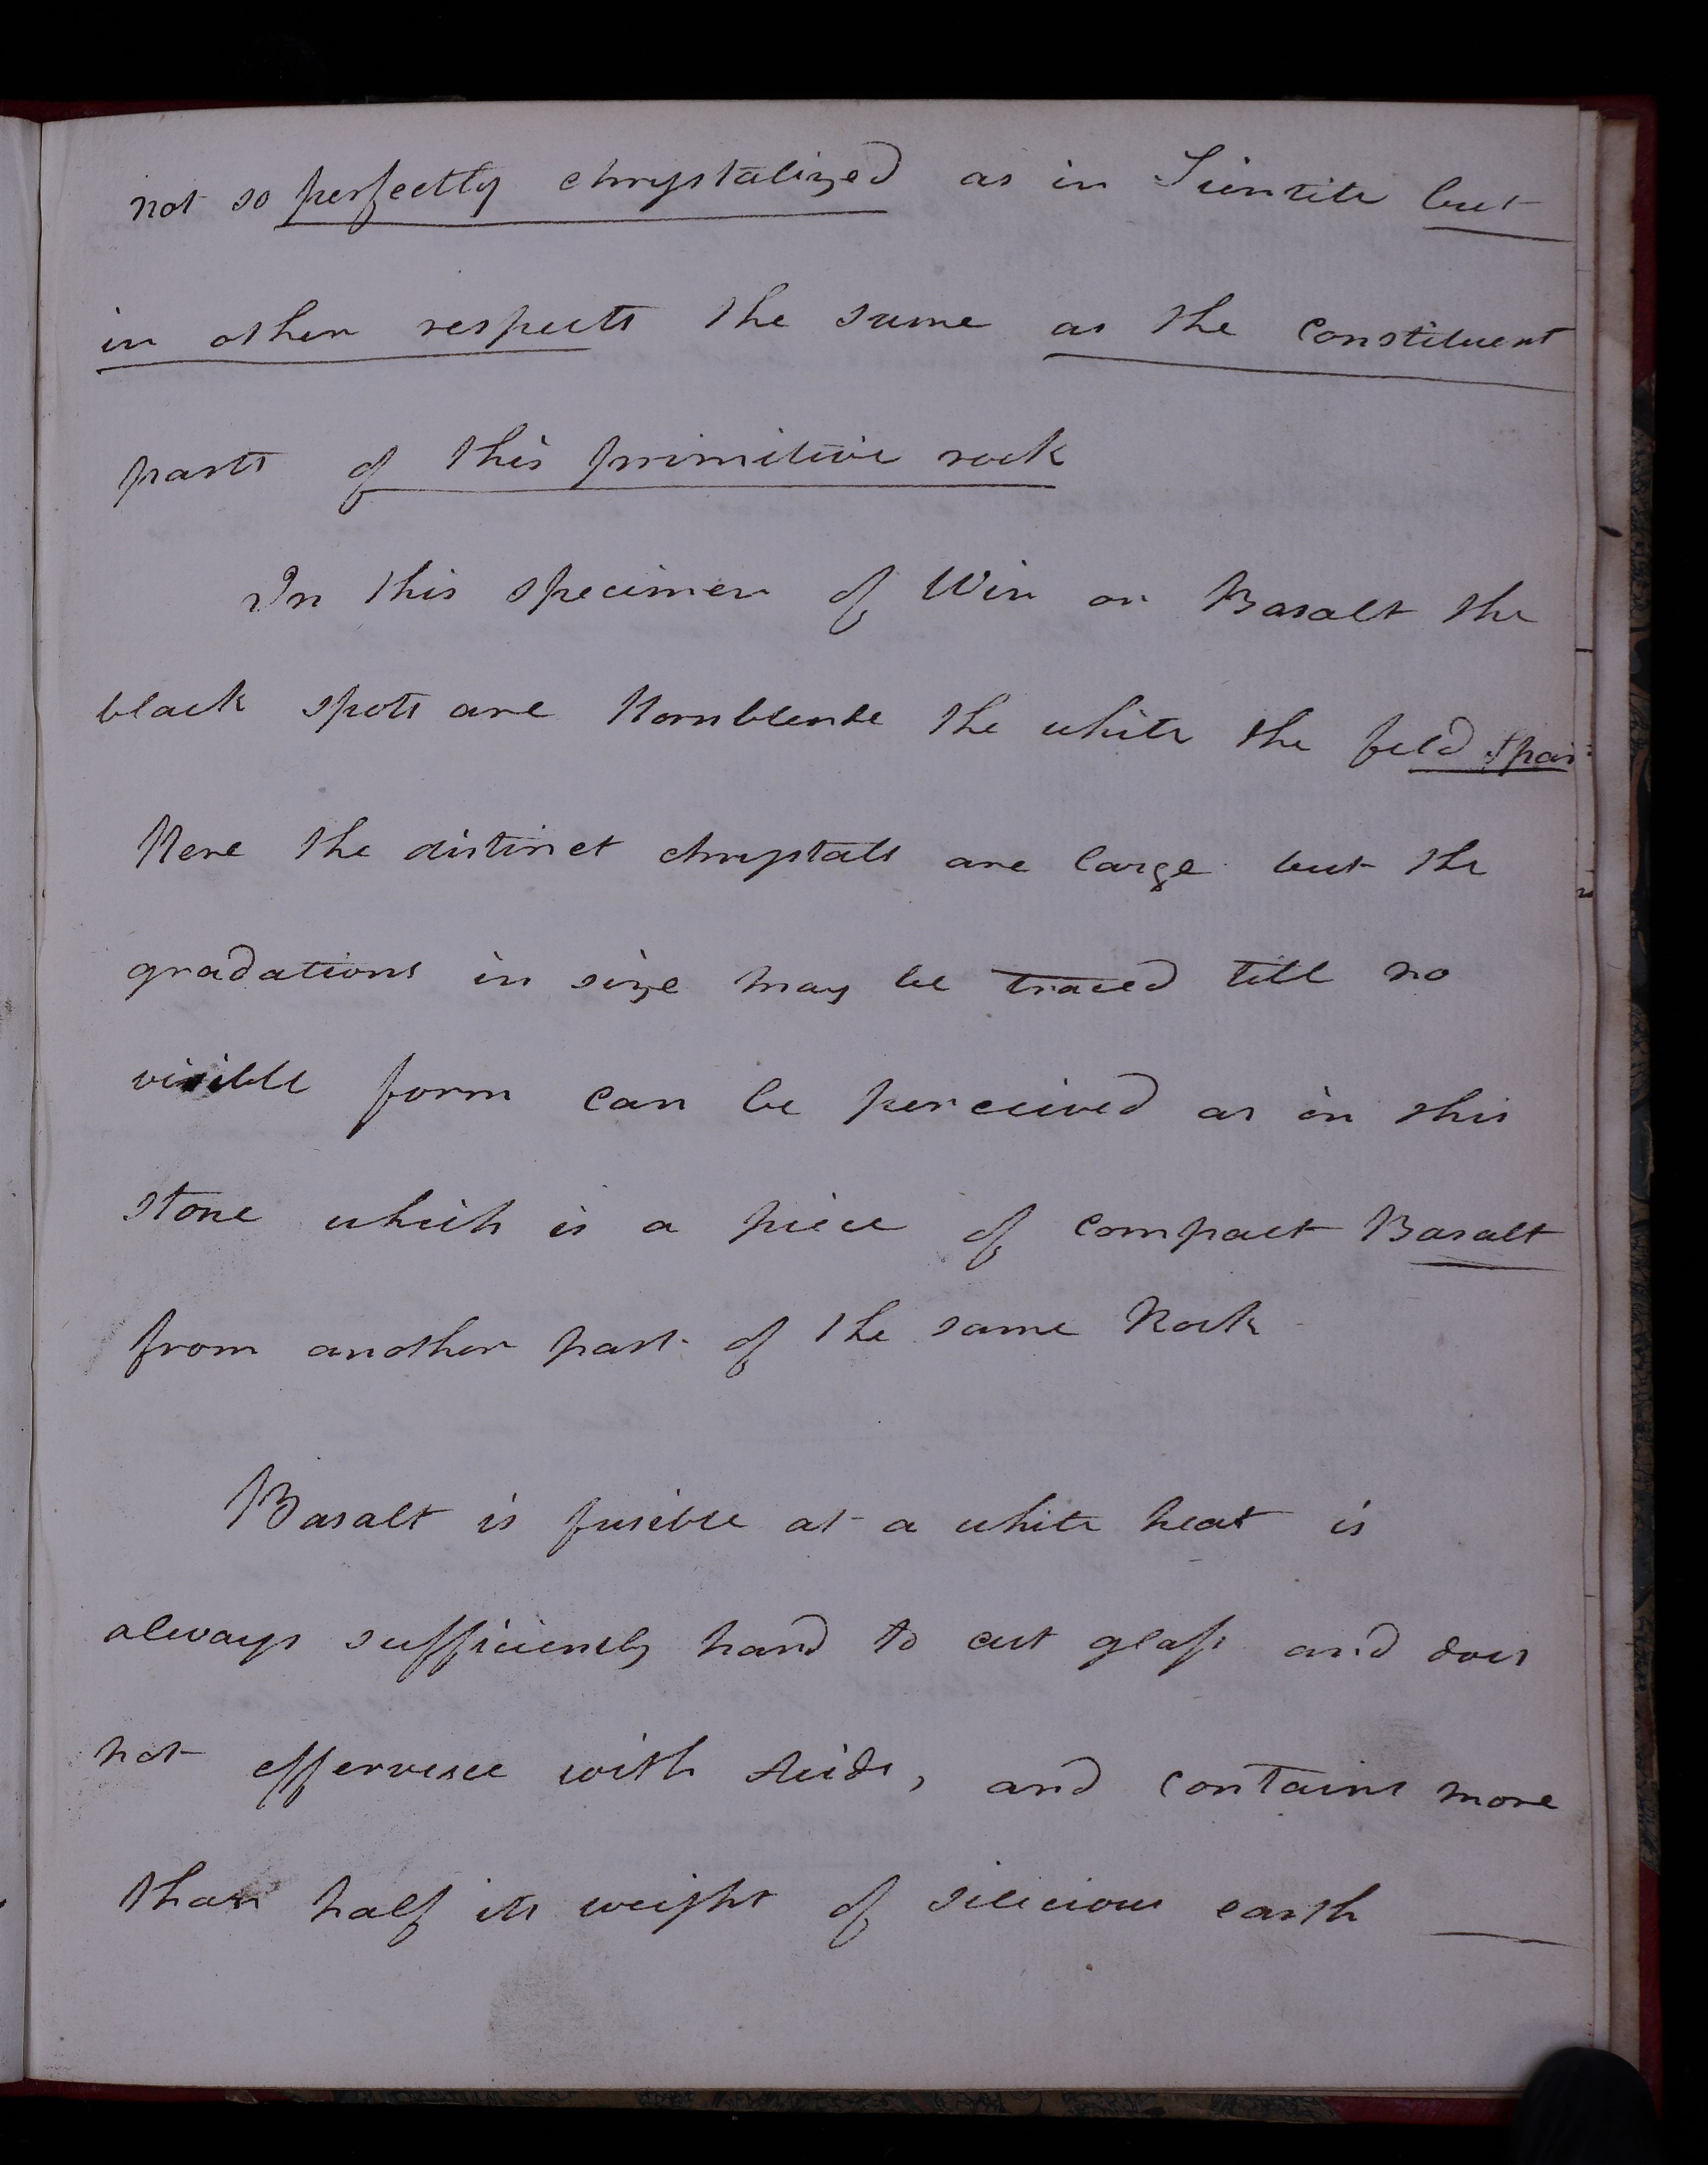 not so perfectly chrystalized as in Sienite but
in other respects the same as the constituent
parts of this primitive rock
In this specimen of Win or Basalt the
black spots are Hornblende the white the feld spar
Here the distinct chrystals are large but the
gradations in size may be traced till no
visible form can be perceived as in this
stone which is a piece of compact Basalt
from another part of the same Rock
Basalt is fusible at a white heat is
always sufficiently hard to cut glass and does
not effervesce with Acids, and contains more
than half its weight of silicious earth —